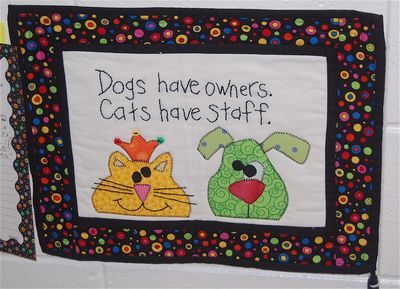 Dogs have owners.
Cats have staff.